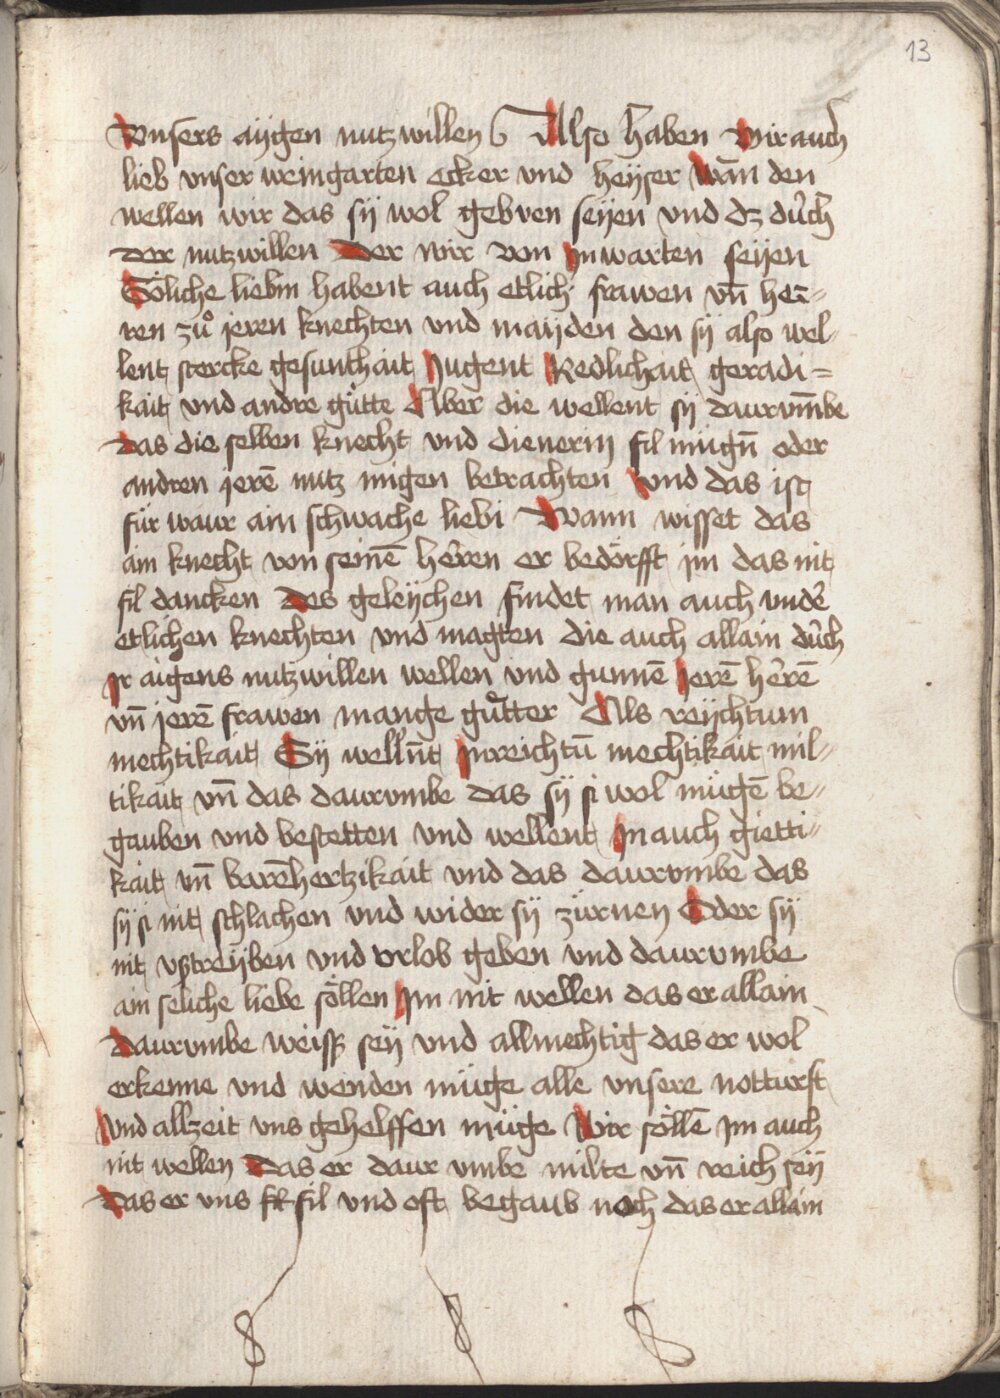 13
Vnsers aygen nutz willen Also haben wir auch
lieb vnser weingarten ecker vnd heyser wan̄ den
wellen wir das sy wol gebven seyen vnd dz durch
der nutz willen Der wir von In warten seyen
Söliche liebin habent auch etlich frawen vn̄ her¬
ren zuͦ jeren knechten vnd mayden den sy also wel¬
lent stercke gesunthait Jugent Redlichait geradi=
kait vnd andre gütte Aber die wellent sy daurvm̄be
Das die selben knecht vnd dienerin fil mügn̄ oder
andren jerē nutz migen betrachten vnd das ist
für waur ain schwache liebi Wann wisset das
ain knecht von seinē heͤren er bedörfft im das nit
fil dancken Des geleychen findet man auch vnder
etlichen knechten vnd magten die auch allain durch
Ir aigens nutz willen wellen vnd gunnē Jerē herē
vn̄ jerē frawen mange guͤtter Als reychtum
mechtikait Sy welln̄t In reichtū mechtikait mil¬
tikait vn̄ das daurvmbe das sy si wol mügē be¬
gauben vnd bestetten vnd wellent In auch gietti¬
kait vn̄ barēhertzikait vnd das daurvmbe das
sy si nit schlachen vnd wider sy zürnen Oder sy
nit vßtreyben vnd vrlob geben vnd daurvmbe
ain seliche liebe söllen Im nit wellen das er allain
Daurvmbe weiß sey vnd allmechtig das er wol
erkenne vnd wenden müge alle vnsere notturft
Vnd allzeit vns gehelffen müge Wir söllē Im auch
nit wellen Das er daur vmbe milte vn̄ reich sey
Das er vns fil vnd oft begaub noch das er allain